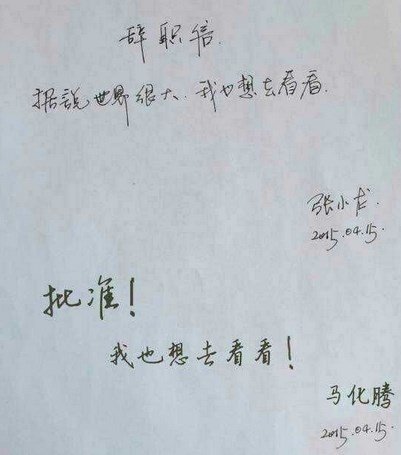 辞职信.
据說世界很大.我也想去看看.
张小龙.
2015.04.15.
批准！
我也想去看看！
马化腾
2015.04.15.